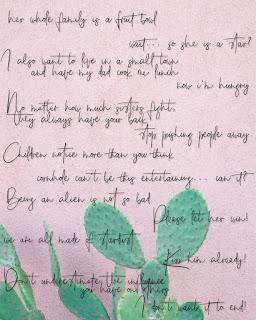 her whole family is a fruit bowl
wait... so she is a star?
I also want to live in a small town
and have my dad cook me lunch
now i'm hungry
No matter how much sisters fight,
they always have your back
stop pushing people away
Children notice more than you think
cornhole can't be this entertaining... can it?
Being an alien is not so bad
Please let her win!
we are all made of stardust
Kiss him already!
Don't underestimate the influence
you have on others
don't want it to end!